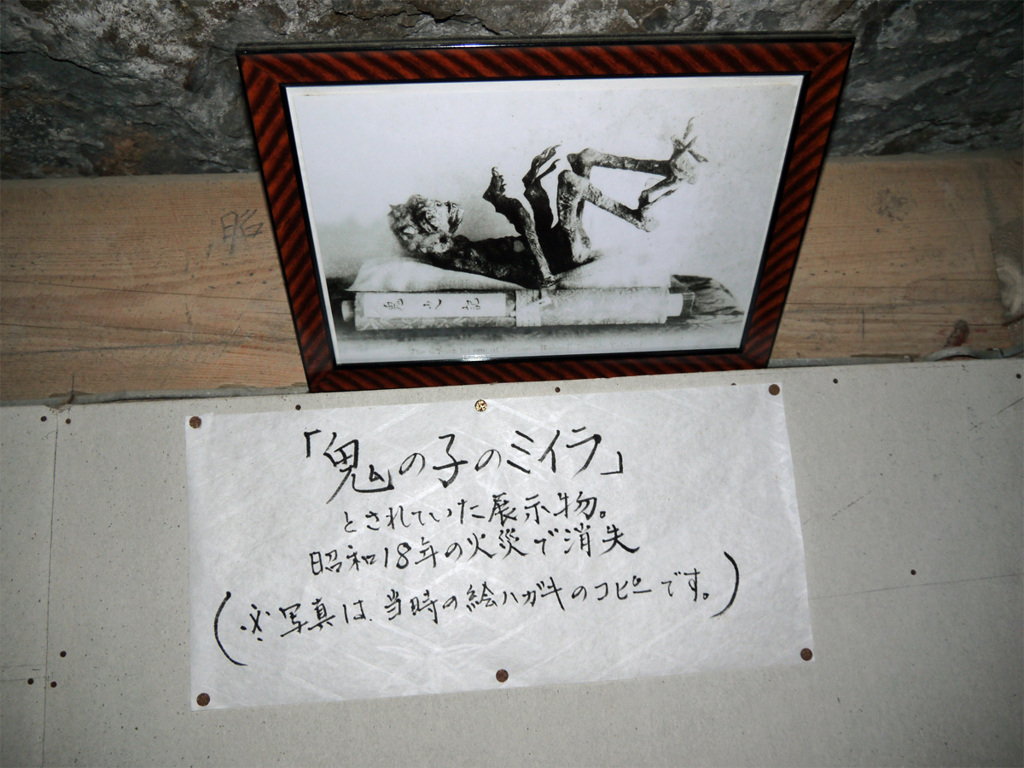 昭
鬼之記
「鬼の子のミイラ」
とされていた展示物。
昭和18年の火災で消失
(※写真は、当時の絵ハガキのコピーです。)